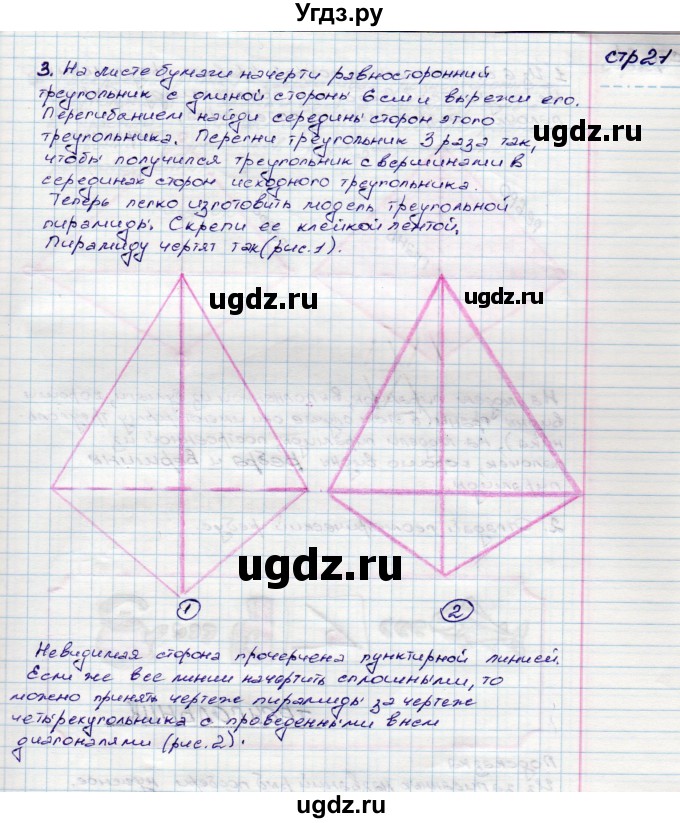 Угдз.ру
стр 21
3. На листе бумаги начерти равносторонний
треугольник с длиной стороны 6 см и вырежи его.
Перегибанием найди середины сторон этого
треугольника. Перегни треугольник 3 раза так,
чтобы получился треугольник с вершинами в
серединах сторон исходного треугольника.
Теперь легко изготовить модель треугольной
пирамиды. Скрепи ее клейкой лентой.
Пирамиду чертят так (рис. 1).
ugdz.ru
ugdz.ru
ugdz.ru
1
2
Невидимая сторона прочерчена пунктирной линией.
Если же все линии начертить сплошными, то
можно принять чертеж пирамиды за чертеж
четырехугольника с проведенными в нем
диагоналями (рис. 2).
ugdz.ru
ugdz.ru